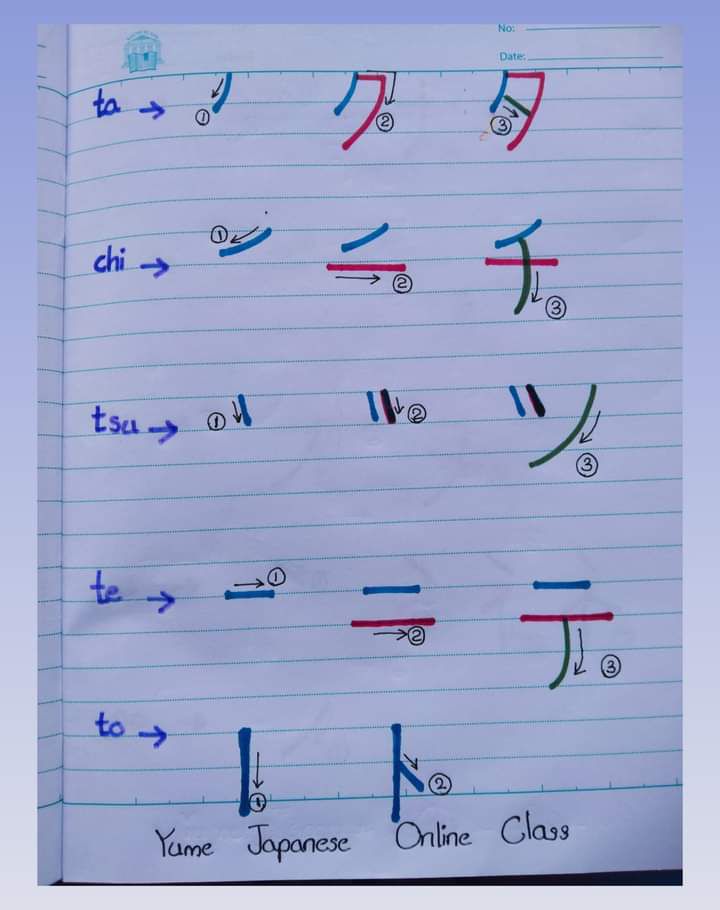 No:
Date:
ta → ① ② タ ③
chi → ① ② チ ③
tsu → ① ② ツ ③
te → ① ② テ ③
to → ① ト ②
Yume Japanese Online Class